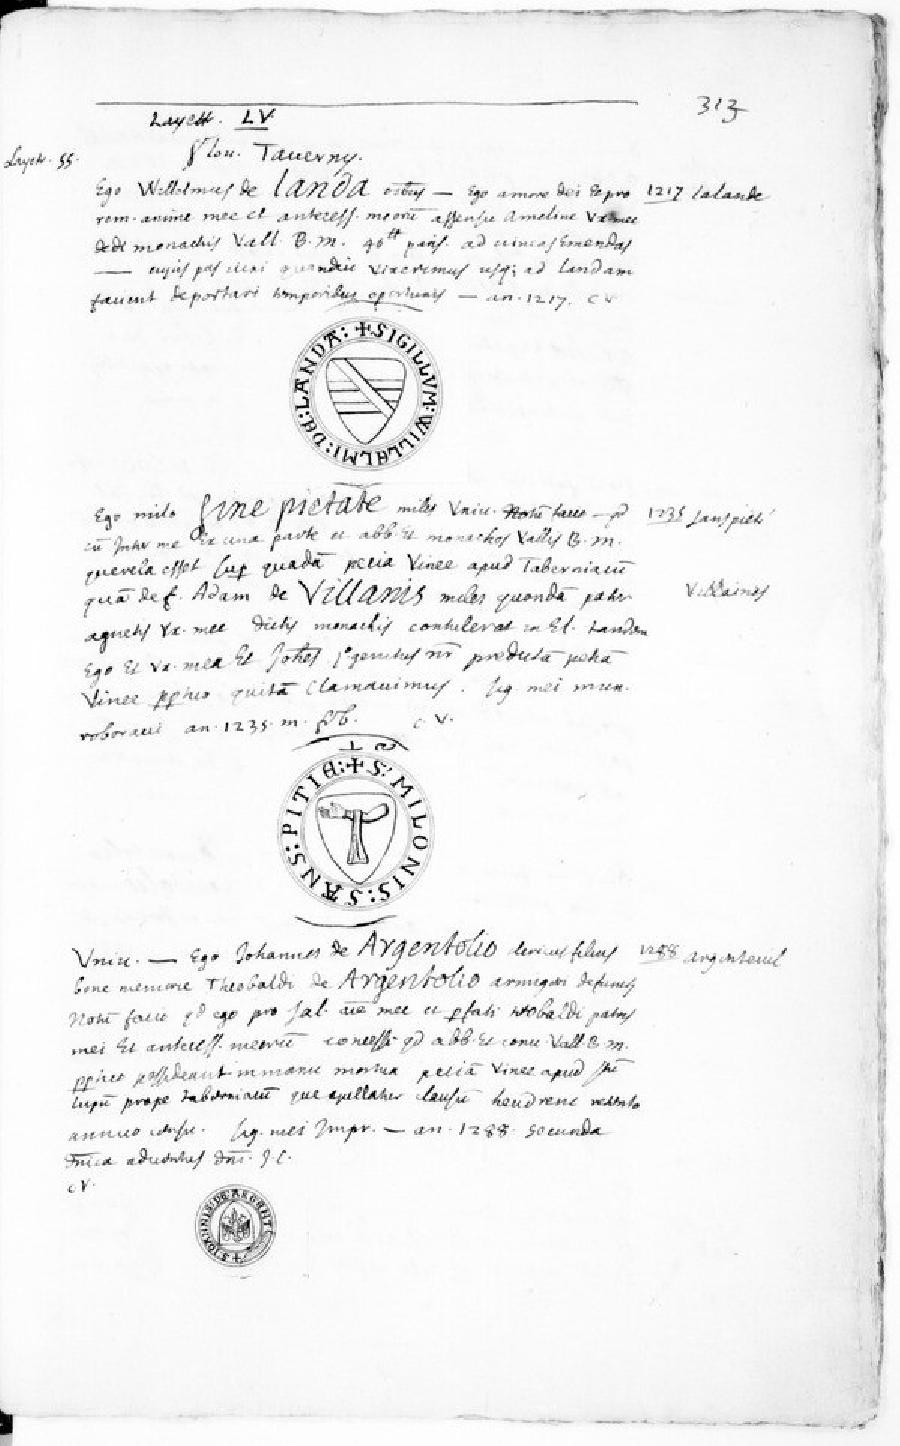 313
Layett. LV
Layett. 55.
Taverny.
Ego Willelmus de Landa — Ego amore dei et pro 1217 Lalande
rem. anime mee et antecess. meorū assensu Ameline Vx. mee
dedi monachis Vall. B. M. 40 ad vineas emendas
— quandiu vixerimus usq; ad Landam
facient deportari temporibus oportunis — an. 1217. c V
✝SIGILLVM:WILLELMI:DE:LANDA:
Ego milo Sine pietate miles Univ. Notū facio — qd 1235 Sanspitié
cū Inter me Ex una parte et abb. Et monachos Vallis B. M.
querela esset sup quadā pecia Vinee apud Taberniacū
quā def. Adam de Villanis miles quondā pater Villaines
agnetis Vx. mee dictis monachis contulerat in El. tandem
Ego Et Vx. mea Et Johēs pgenitus nr predictā peciā
Vinee ppetuo quitā Clamavimus. Sig. mei mun.
roboravi an. 1235. m. feb. c V.
✝ S' MILONIS:SANS:PITIE:
Univ. — Ego Johannes de Argentolio clericus filius 1288 argenteuil
bone memorie Theobaldi de Argentolio armigeri defuncti
Notū facio qd ego pro Sal. aīe mee et pfati theobaldi patris
mei Et antecess. meorū concessi qd abb. Et conv. Vall. B. M.
ppetuo possideant in manu mortua peciā Vinee apud
lupū prope taberniacū que apellatur clausū
annuo censu. Sig. mei Impr. — an. 1288. Secunda
dnica adventus dni. J. C.
c V.
✝ S' IOHANNIS:DE:ARGENT